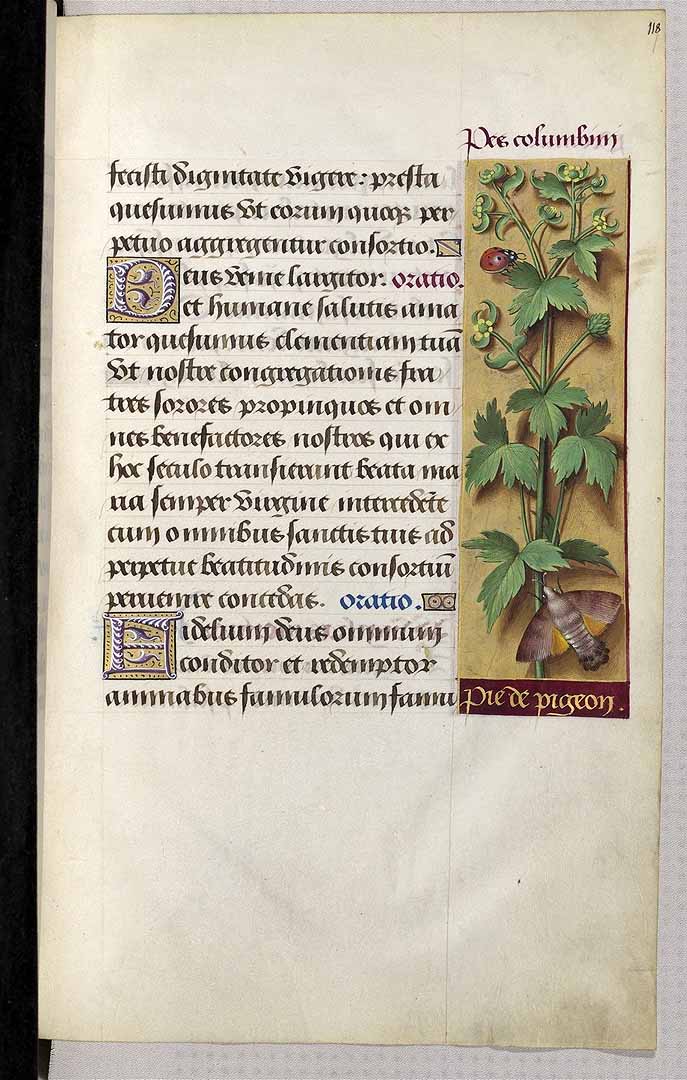 118
Pes columbinus
fecisti dignitate vigere: presta
quesumus vt eorum quoqz per
petuo aggregentur consortio.
Deus venie largitor. oratio.
et humane salutis ama
tor quesumus clementiam tuā
Vt nostre congregationis fra
tres sorores propinquos et om
nes benefactores nostros qui ex
hoc seculo transierunt beata ma
ria semper virgine intercedēte
cum omnibus sanctis tuis ad
perpetue beatitudinis consortiū
peruenire concedas. oratio.
Fidelium deus omnium
conditor et redemptor
animabus famulorum famu
Pie de pigeon.